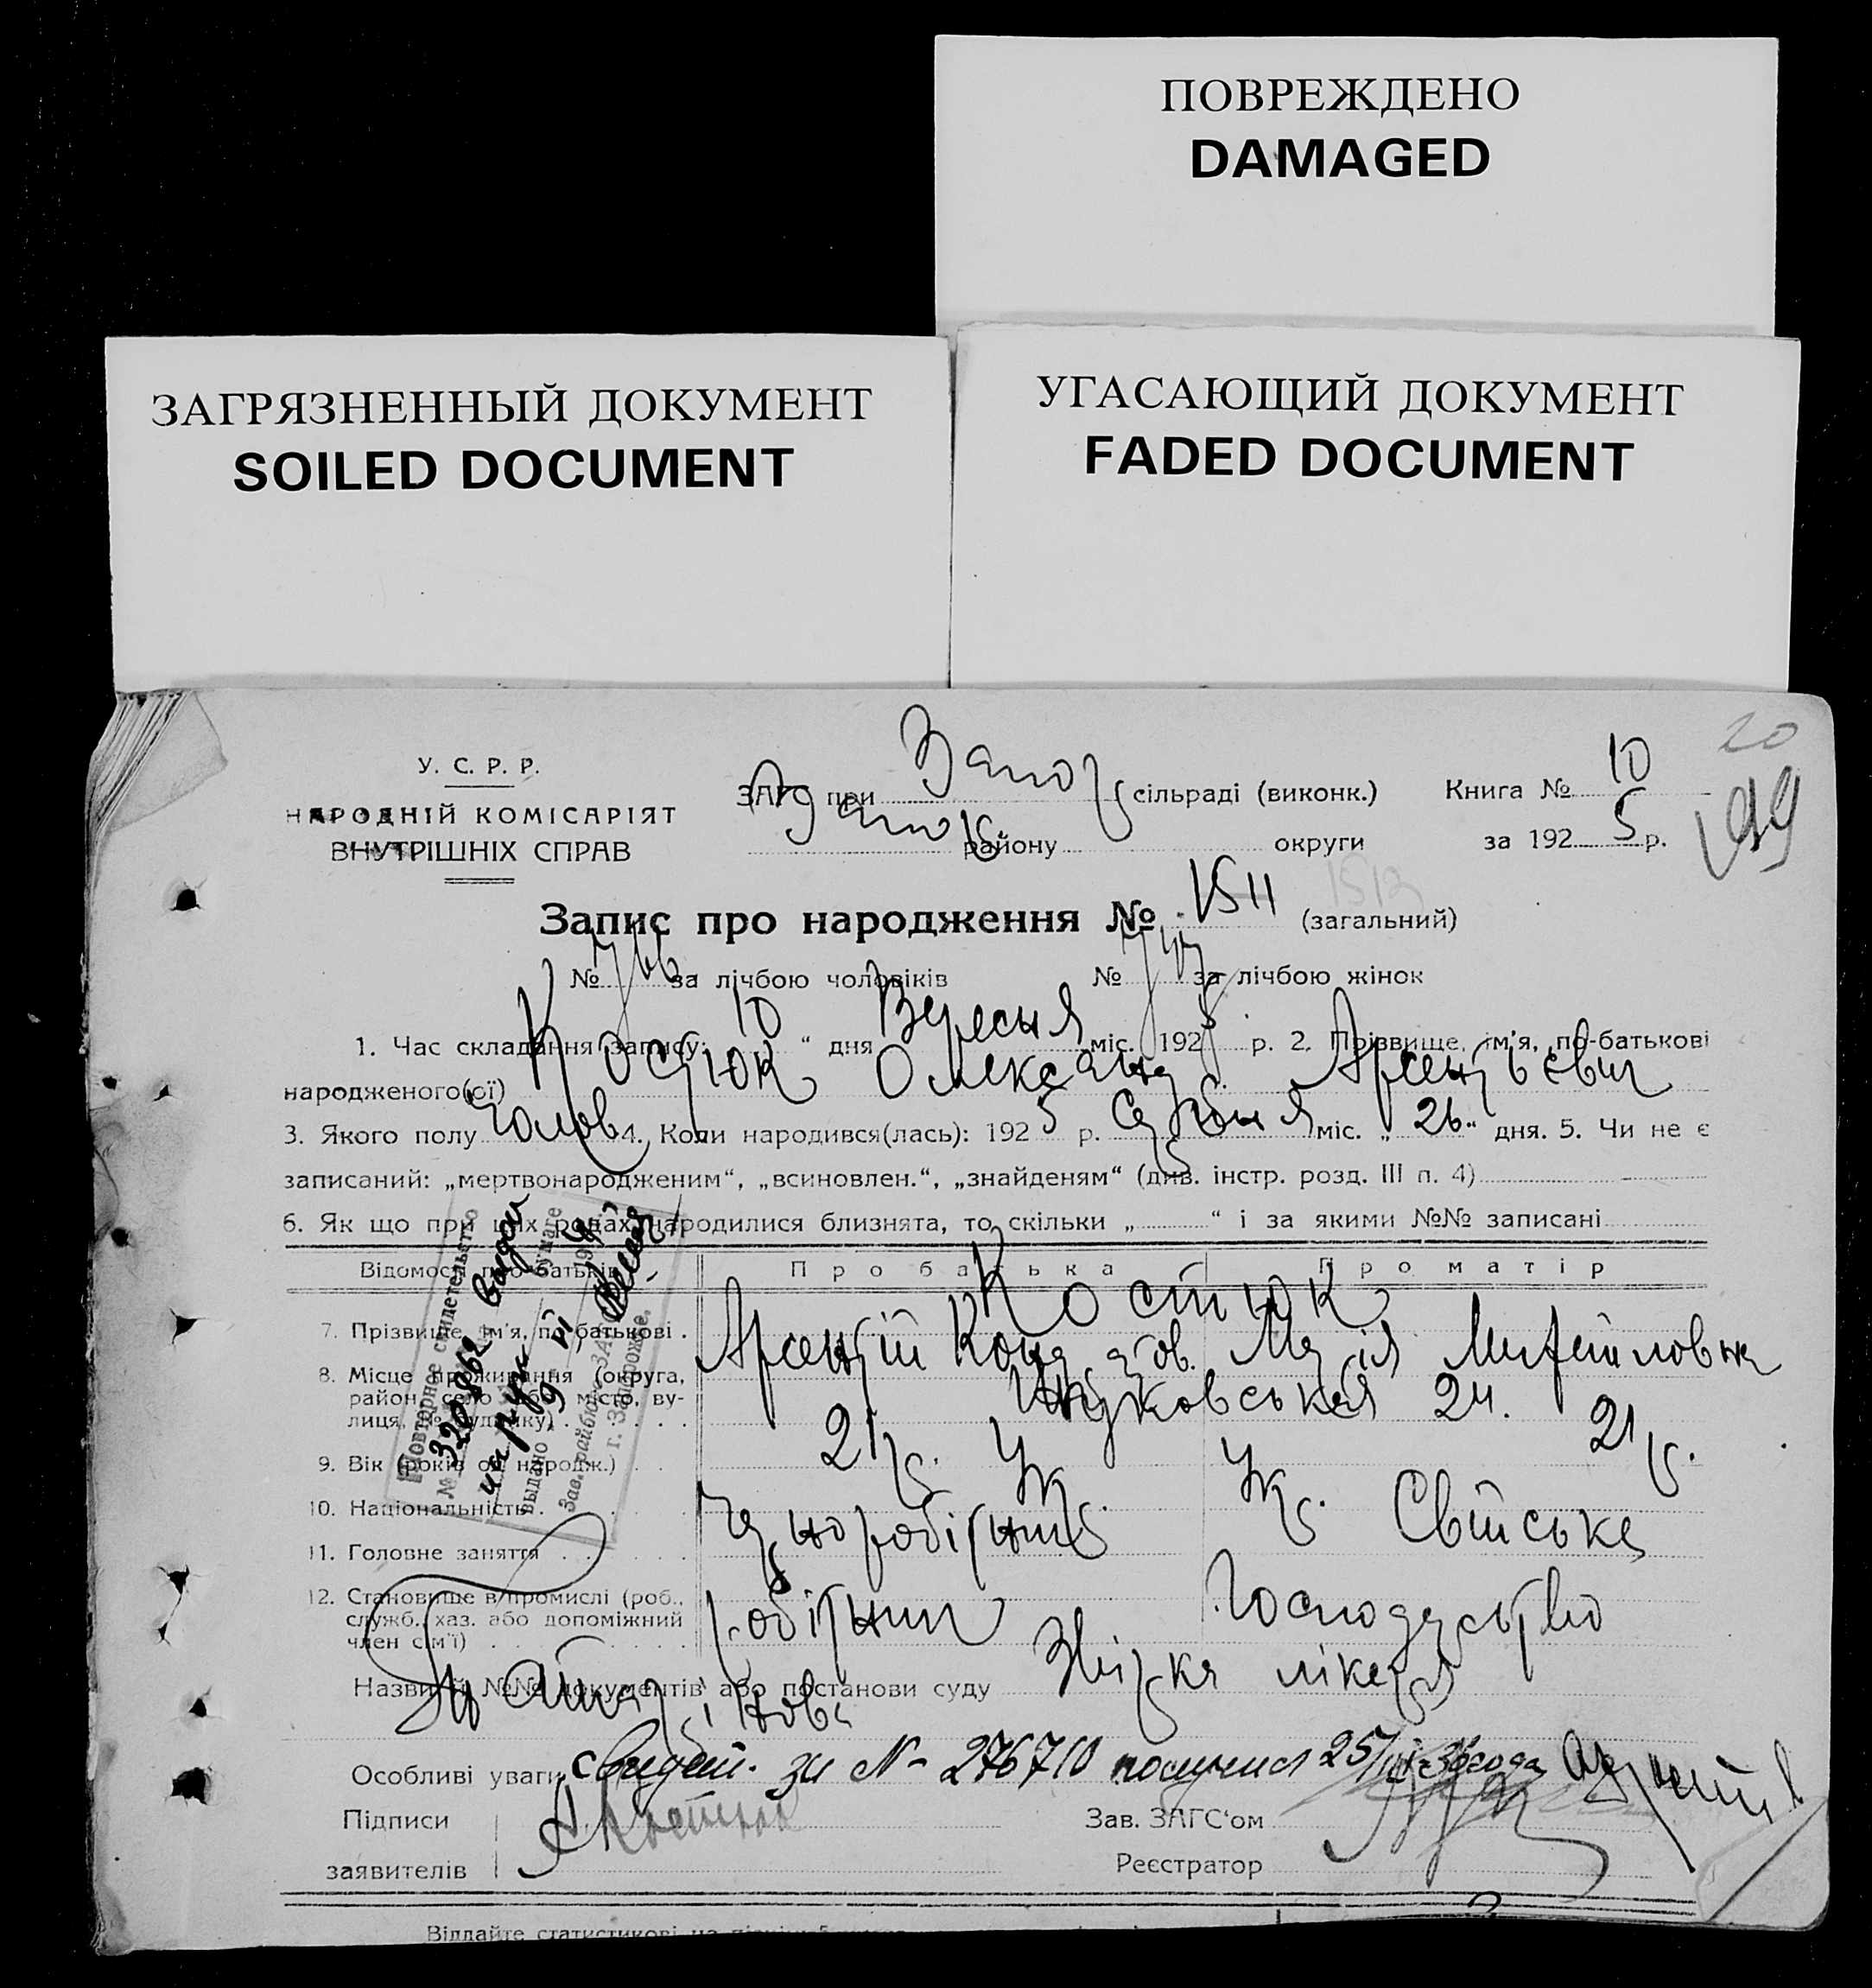 ПОВРЕЖДЕНО
DAMAGED
ЗАГРЯЗНЕННЫЙ ДОКУМЕНТ
SOILED DOCUMENT
УГАСАЮЩИЙ ДОКУМЕНТ
FADED DOCUMENT
20
99
У. С. Р. Р.
НАРОДНІЙ КОМІСАРІЯТ
ВНУТРІШНІХ СПРАВ
ЗАГС при Запор сільраді (виконк.)
району округи
Книга № 10
за 1925 р.
Запис про народження № 1511 (загальний)
№ 766 за лічбою чоловіків № за лічбою жінок
1. Час складання запису: 10 " дня Вересня міс. 1925 р. 2. Прізвище, ім'я, по-батькові
народженого(ої) Костюк Олександр Арсентьєвич
3. Якого полу Чолов. 4. Коли народився(лась): 1925 р. Серпня міс. „ 26 " дня. 5. Чи не є
записаний: „мертвонародженим“, „всиновлен.“, „знайденям“ (див. інстр. розд. III п. 4)
6. Як що при цих родах народилися близнята, то скільки „ “ і за якими №№ записані
Відомості про батьків Про батька Про матір
Костюк
7. Прізвище, ім'я, по батькові . Арсентій Кондратов. Марія Михайловна
8. Місце проживання (округа, район, село або місто, вулиця, № будинку) Жуковськая 24.
9. Вік (років од народж.) 21 р. 21 р.
10. Національність Ук. Ук.
11. Головне заняття Чорноробітник Свійське
12. Становище в промислі (роб., служб., хаз. або допоміжний член сім'ї) робітник Господарство
Назви й №№ документів або постанови суду Звістка лікаря
Особливі уваги свидет. за № 276710 получил
Підписи
заявителів
А. Костюк
Зав. ЗАГС‘ом
Реєстратор
Повторное свидетельство
№ 320862 выдан
на руки
выдано 9
Зав. райбюро ЗАГС
г. Запорожье.